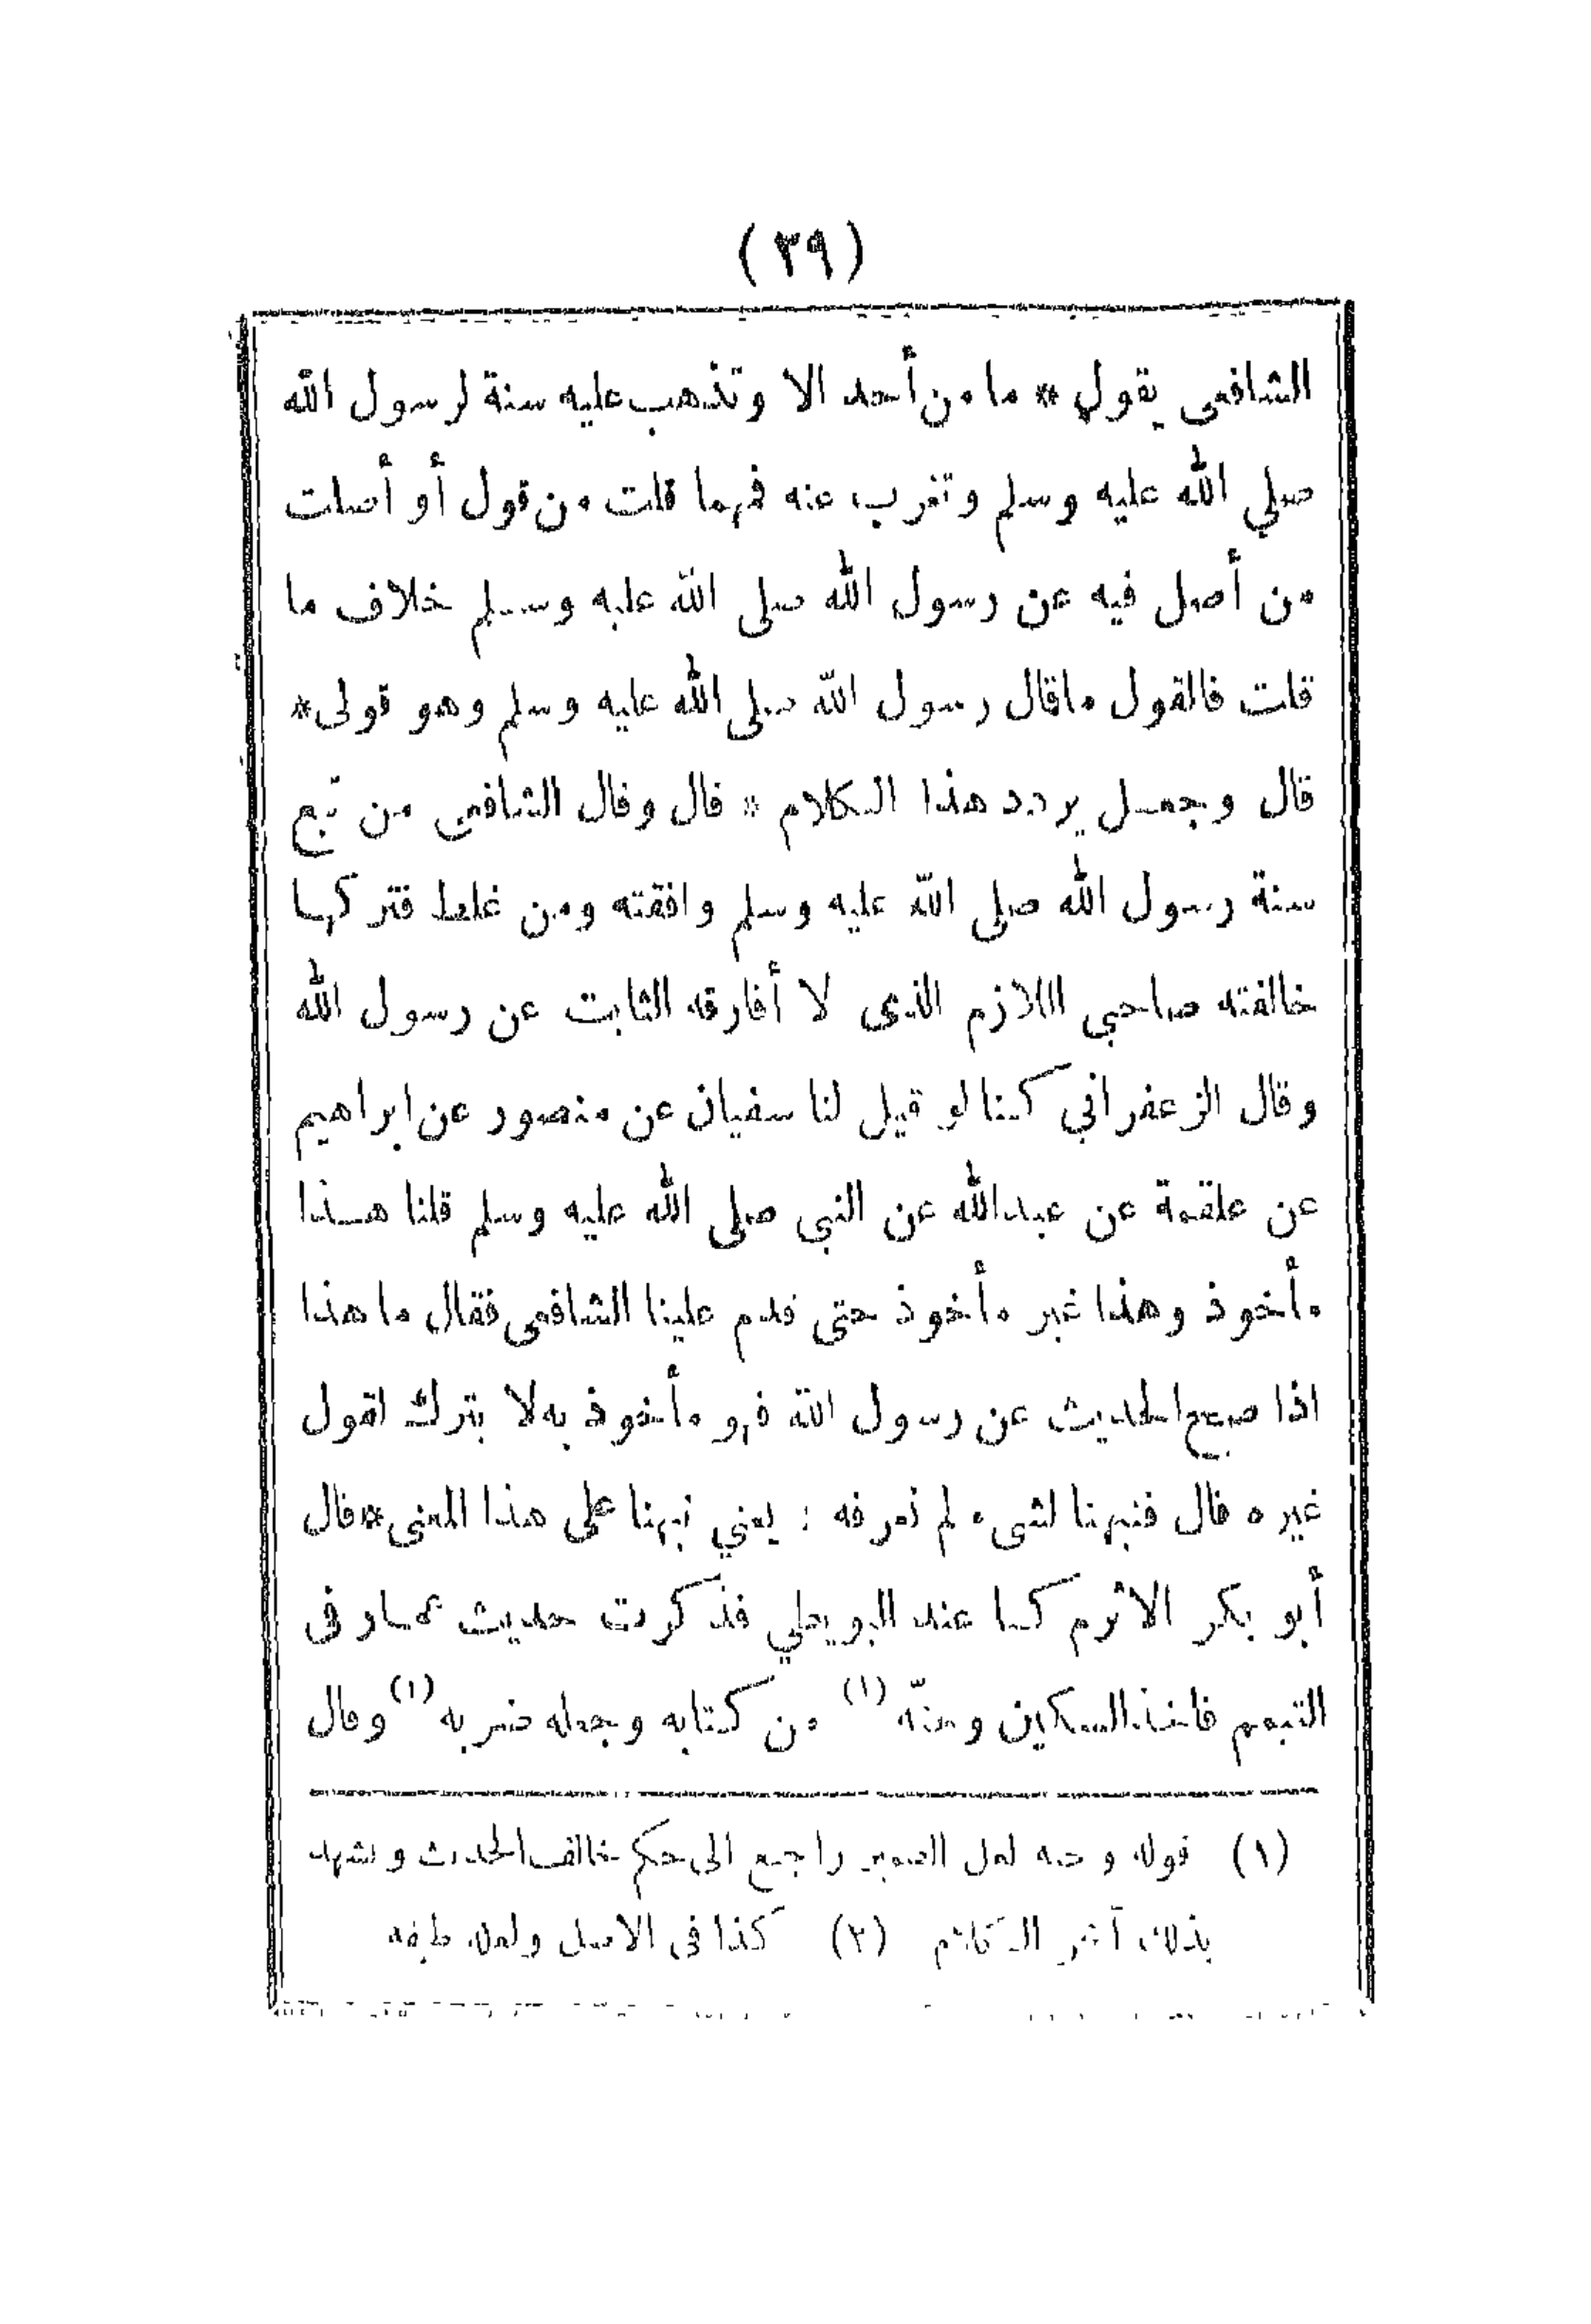 (٣٩)
الشافعى يقول * ما من أحد الا وتذهب عليه سنة لرسول الله
صلي الله عليه وسلم وتغرب عنه فمهما قلت من قول أو أصلت
من أصل فيه عن رسول الله صلى الله عليه وسلم خلاف ما
قلت فالقول ماقال رسول الله صلى الله عليه وسلم وهو قولى *
قال وجعل يردد هذا الكلام * قال وقال الشافعى من تبع
سنة رسول الله صلى الله عليه وسلم وافقته ومن غلط فتركها
خالفته صاحبي اللازم الذى لا أفارقه الثابت عن رسول الله
وقال الزعفراني كنا لو قيل لنا سفيان عن منصور عن ابراهيم
عن علقمة عن عبدالله عن النبى صلى الله عليه وسلم قلنا هذا
مأخوذ وهذا غير مأخوذ حتى قدم علينا الشافعى فقال ما هذا
اذا صح الحديث عن رسول الله فهو مأخوذ به لا يترك لقول
غيره قال فنبهنا لشىء لم نعرفه : يعني نبهنا على هذا المعنى * قال
أبو بكر الاثرم كنا عند البويطي فذكرت حديث عمار فى
التيمم فاخذ السكين وحتّه (١) من كتابه وجعله ضربه (١) وقال
(١) قوله وحته لعل الضمير راجع الى حكم خالف الحديث ويشهد
بذلك آخر الكلام (٢) كذا فى الاصل ولعله